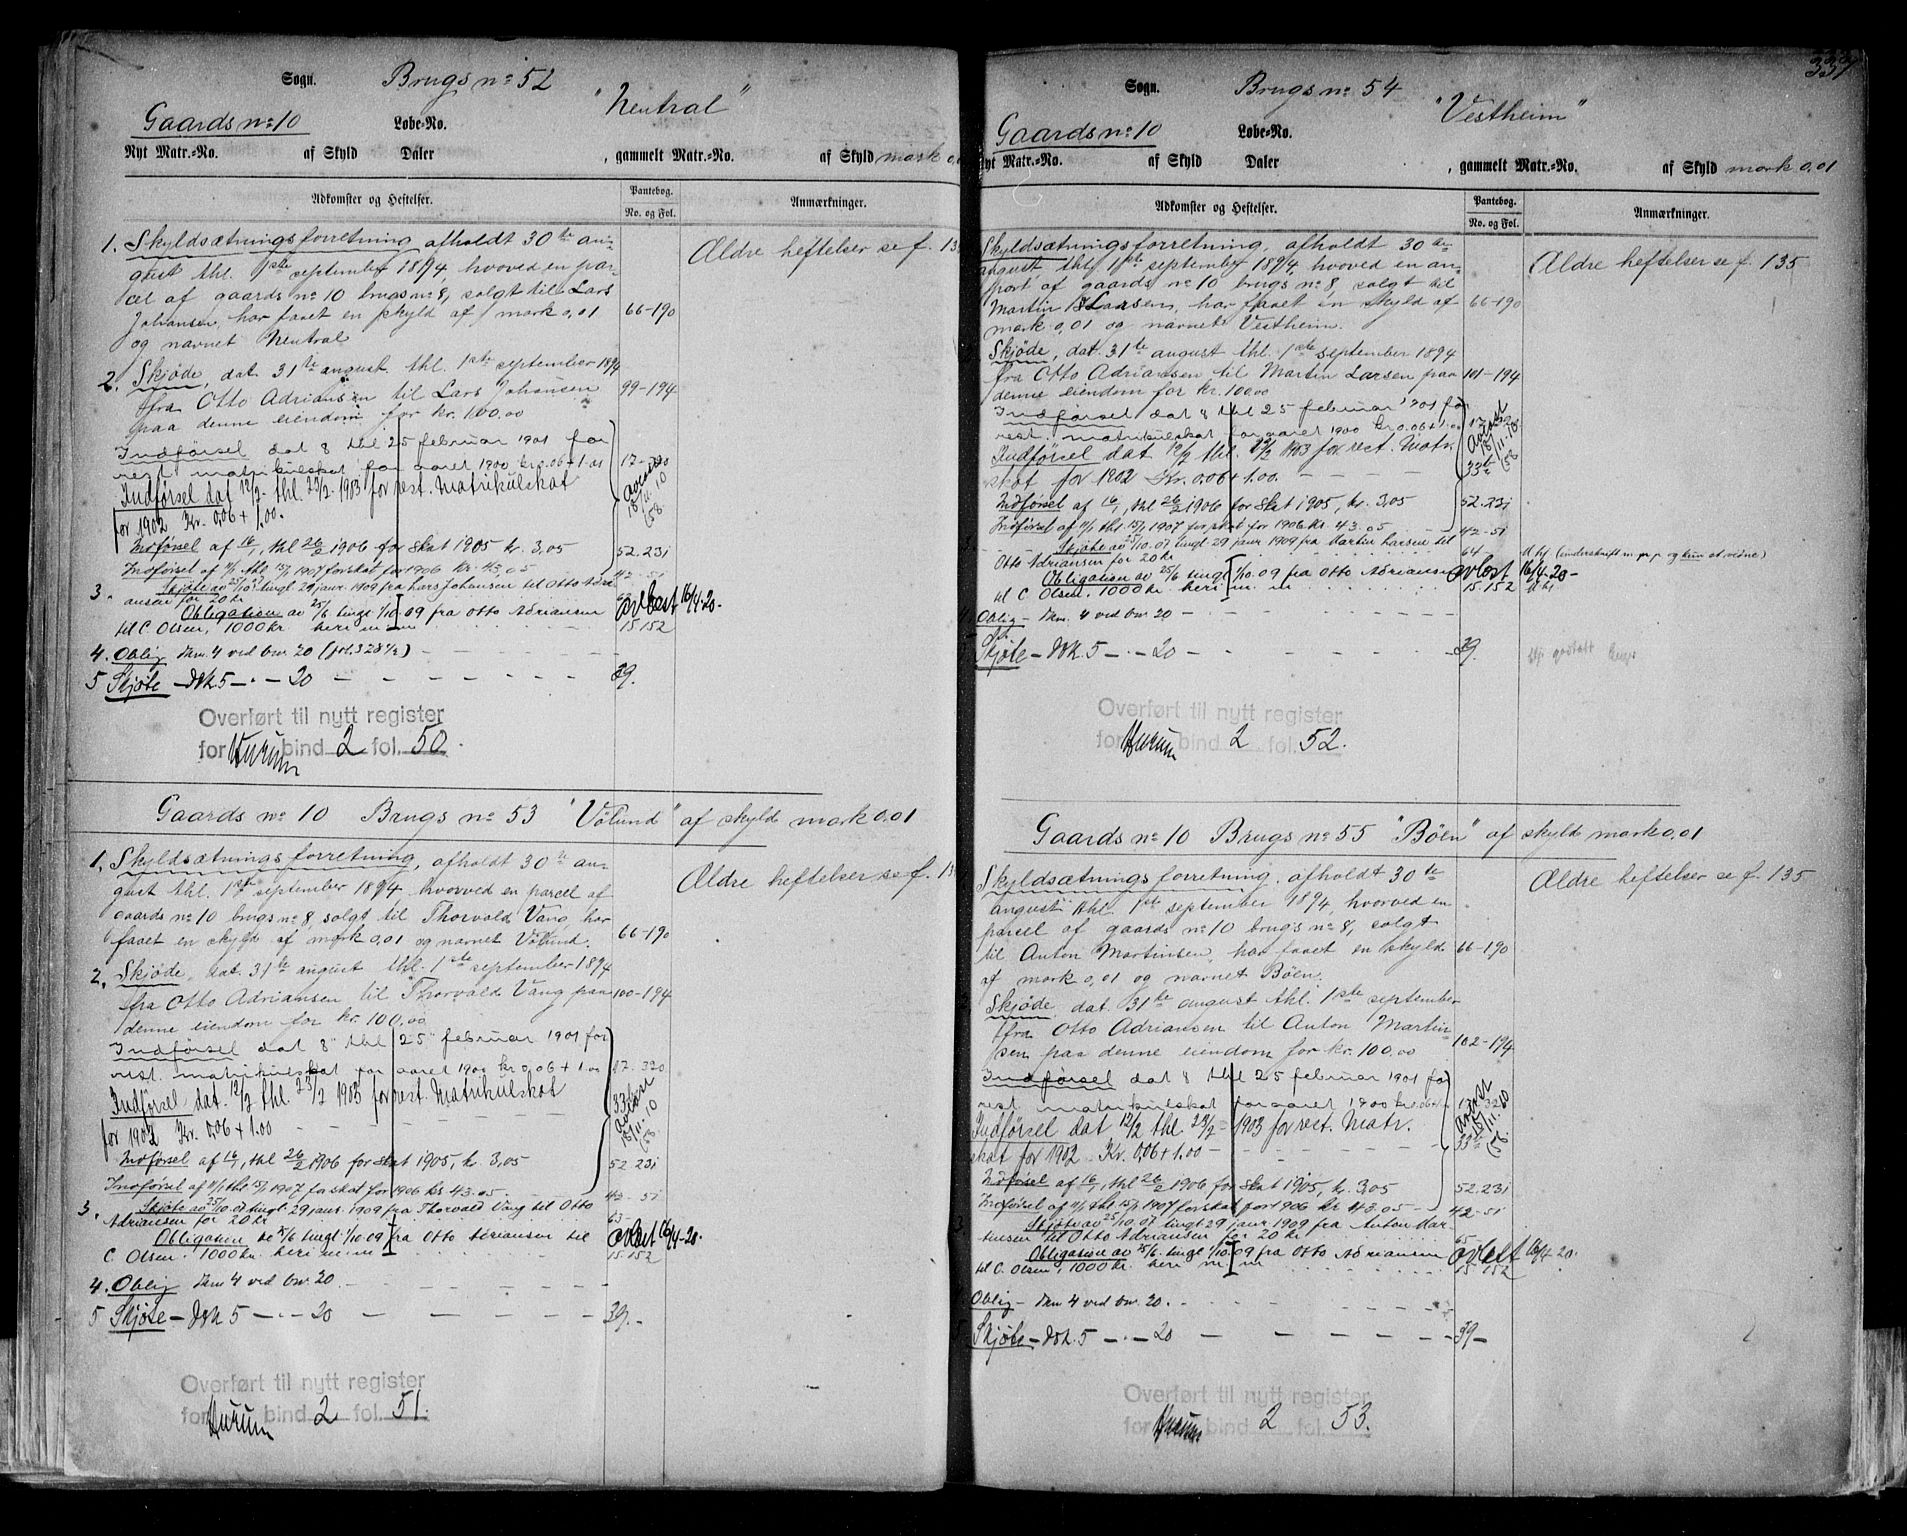 Sogn. Brugs nº 52
"Neutral"
Gaards nº 10 Løbe-No.
Nyt Matr.-No. af Skyld Daler , gammelt Matr.-No. af Skyld mark 0,0
Adkomster og Heftelser. Pantebog. No. og Fol. Anmærkninger.
1. Skyldsætningsforretning afholdt 30te au-
gust thl. 1ste september 1894 hvoved en par-
cel af gaards nº 10 brugs nº 8, solgt til Lars
Johansen, har faaet en skyld af mark 0,01 66-190
og navnet Neutral
Ældre heftelser se f. 13
2. Skjøde, dat. 31te august thl. 1ste september 1894
fra Otto Adriansen til Lars Johansen 99-194
paa denne eiendom for kr. 100.00
Indførsel dat 8 thl 25 februar 1901 for
rest. matrikulskat for aaret 1900 kr 0.06 + 1.00
Indførsel dat 12/2 thl. 23/2 1903 for rest. Matrikulskat
for 1902 Kr. 0,06 + 1.00.
Indførsel af 16/1, thl 26/2 1906 for skat 1905 kr. 3,05 52.231
Indførsel af 11/1 thl 15/1 1907 for skat for 1906 kr. 43,05 42-51
3. Skjøte av 25/10 07 tingl. 29 januar 1909 fra Lars Johansen til Otto Adri-
ansen for 20 kr
Obligation av 25/6 tingl 1/10 09 fra Otto Adriansen avlæst 16/4-20.
til C. Olsen, 1000 kr heri m.m 15 152
4. Oblig dkm. 4 ved bnr 20 (fol. 328 1/2)
5 Skjøte - dok 5 - " - 20 - - - 39.
Overført til nytt register
for Hurum bind 2 fol. 50.
Gaards nº 10 Brugs nº 53 "Vølund" af skyld mark 0,01
1. Skyldsætningsforretning, afholdt 30te au-
gust thl. 1ste september 1894 hvorved en parcel af
gaards nº 10 brugs nº 8, solgt til Thorvald Vang, har
faaet en skyld af mark 0,01 og navnet Vølund. 66-190
Ældre heftelser se f. 13
2. Skjøde, dat. 31te august thl. 1ste september 1894
fra Otto Adriansen til Thorvald Vang paa 100-194
denne eiendom for kr. 100,00
Indførsel dat 8 thl 25 februar 1901 for
rest. matrikulskat for aaret 1900 kr 0,06 + 1.00 17.320
Indførsel dat. 12/2 thl. 23/2 1903 for rest. Matrikulskat
for 1902 Kr. 0,06 + 1.00
Indførsel af 16/1, thl 26/2 1906 for skat 1905, kr. 3,05 52.231
Indførsel af 11/1 thl 15/1 1907 for skat for 1906 kr 43.05 42-51
3. Skjøte av 25/10.07 tingl. 29 januar 1909 fra Thorvald Vang til Otto
Adriansen for 20 kr 63
Obligation av 25/6 tingl 1/10 09 fra Otto Adriansen til avlæst 16/4-20.
C. Olsen. 1000 kr. heri m.m 15.152
4. Oblig dkm. 4 ved bnr. 20.
5 Skjøte - dok 5 - " - 20 - - - 39.-
Overført til nytt register
for Hurum bind 2 fol. 51.
337
Sogn. Brugs nº 54
"Vestheim"
Gaards nº 10 Løbe-No.
Nyt Matr.-No. af Skyld Daler , gammelt Matr.-No. af Skyld mark 0,01
Adkomster og Heftelser. Pantebog. No. og Fol. Anmærkninger.
Skyldsætningsforretning, afholdt 30te
august thl. 1ste september 1894, hvoved en an-
part af gaards nº 10 brugs nº 8, solgt til
Martin Larsen, har faaet en skyld af 66-190
mark 0,01 og navnet Vestheim.
Ældre heftelser se f. 135
Skjøde, dat. 31te august thl. 1ste september 1894
fra Otto Adriansen til Martin Larsen paa 101-194
denne eiendom for kr. 100.00
Indførsel dat 8 thl 25 februar 1901 for
rest. matrikulskat for aaret 1900 kr 0.06 + 1.00
Indførsel dat 12/2 thl. 23/2 1903 for rest. Matr.
skat for 1902 Kr. 0,06 + 1.00.
Indførsel af 16/1, thl 26/2 1906 for skat 1905, kr. 3,05 52.231
Indførsel af 11/1 thl. 15/1 1907 for skat for 1906 kr. 43.05 42-51
Skjøte av 25/10.07 tingl. 29 januar 1909 fra Martin Larsen til
Otto Adriansen for 20 kr 64
Obligation av 25/6 tingl 1/10.09 fra Otto Adriansen avlæst 16/4-20-
til C. Olsen. 1000 kr heri m. m 15.152
Oblig - dkm. 4 ved bnr 20
Skjøte - dok. 5 - " - 20 - - - 39.
Overført til nytt register
for Hurum bind 2 fol. 52.
Gaards nº 10 Brugs nº 55 "Böen" af skyld mark 0,01
Skyldsætningsforretning, afholdt 30te
august thl. 1ste september 1894, hvorved en
parsel af gaards nº 10 brugs nº 8, solgt
til Anton Martinsen, har faaet en skyld 66-190
af mark 0,01 og navnet Böen.
Ældre heftelser se f. 135
Skjøde, dat. 31te august thl. 1ste september
fra Otto Adriansen til Anton Martin-
sen paa denne eiendom for kr. 100.00 102-194
Indførsel dat 8 thl 25 februar 1901 for
rest matrikulskat for aaret 1900 kr. 0.06
Indførsel dat 12/2 thl. 23/2 1903 for rest. Matr.
skat for 1902 Kr. 0,06 + 1.00
Indførsel af 16/1, thl 26/2 1906 for skat 1905, kr. 3,05 52.231
Indførsel af 11/1 thl. 15/1 1907 for skat for 1906 kr 43.05 42-51
Skjøte av 25/10.07 tingl 29 januar 1909 fra Anton Mar-
tinsen til Otto Adriansen for 20 kr 65
Obligation av 25/6 tingl 1/10 09 fra Otto Adriansen avlæst 16/4 20.
til C. Olsen, 1000 kr. heri m m 15 152
Oblig - dkm 4 ved bnr 20.
Skjøte - dok. 5 - " - 20 - - - 39-
Overført til nytt register
for Hurum bind 2 fol. 53.